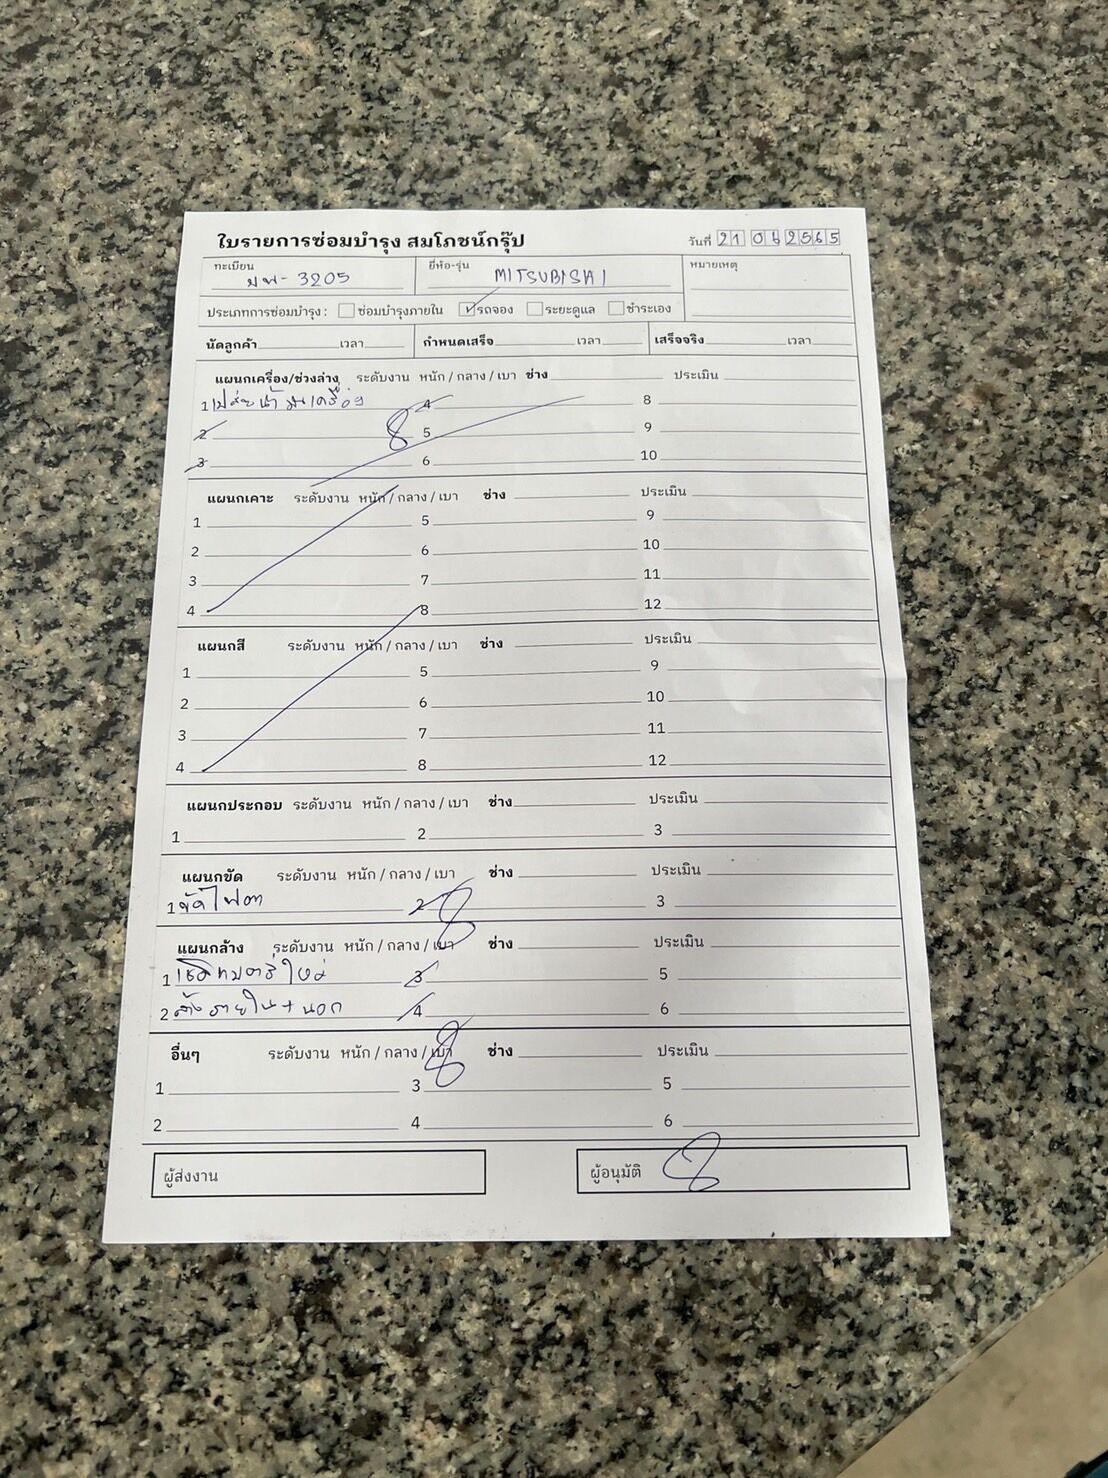 ใบรายการซ่อมบำรุง สมโภชน์กรุ๊ป วันที่ 21 06 2565
ทะเบียน ยี่ห้อ-รุ่น หมายเหตุ
3205 MITSUBISHI
ประเภทการซ่อมบำรุง : ซ่อมบำรุงภายใน รถจอง ระยะดูแล ชำระเอง
นัดลูกค้า เวลา กำหนดเสร็จ เวลา เสร็จจริง เวลา
แผนกเครื่อง/ช่วงล่าง ระดับงาน หนัก / กลาง / เบา ช่าง ประเมิน
1 เปลี่ยนน้ำมันเครื่อง 4 8
2 5 9
3 6 10
แผนกเคาะ ระดับงาน หนัก / กลาง / เบา ช่าง ประเมิน
1 5 9
2 6 10
3 7 11
4 8 12
แผนกสี ระดับงาน หนัก / กลาง / เบา ช่าง ประเมิน
1 5 9
2 6 10
3 7 11
4 8 12
แผนกประกอบ ระดับงาน หนัก / กลาง / เบา ช่าง ประเมิน
1 2 3
แผนกขัด ระดับงาน หนัก / กลาง / เบา ช่าง ประเมิน
1 ขัดไฟตา 2 3
แผนกล้าง ระดับงาน หนัก / กลาง / เบา ช่าง ประเมิน
1 3 5
2 ล้างภายใน + นอก 4 6
อื่นๆ ระดับงาน หนัก / กลาง / เบา ช่าง ประเมิน
1 3 5
2 4 6
ผู้ส่งงาน ผู้อนุมัติ